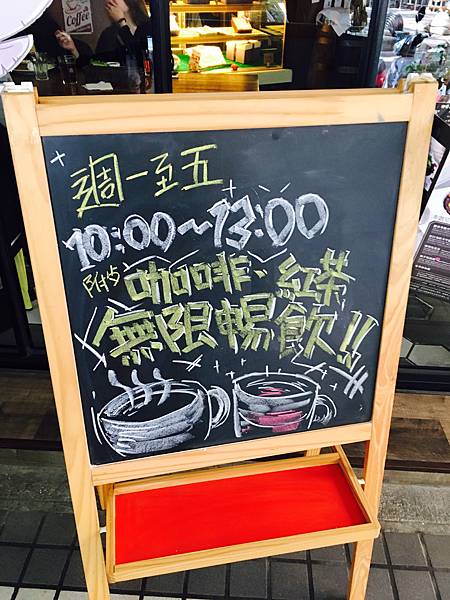 Coffee
週一至五
10:00~13:00
附抄 咖啡、紅茶
無限暢飲!!